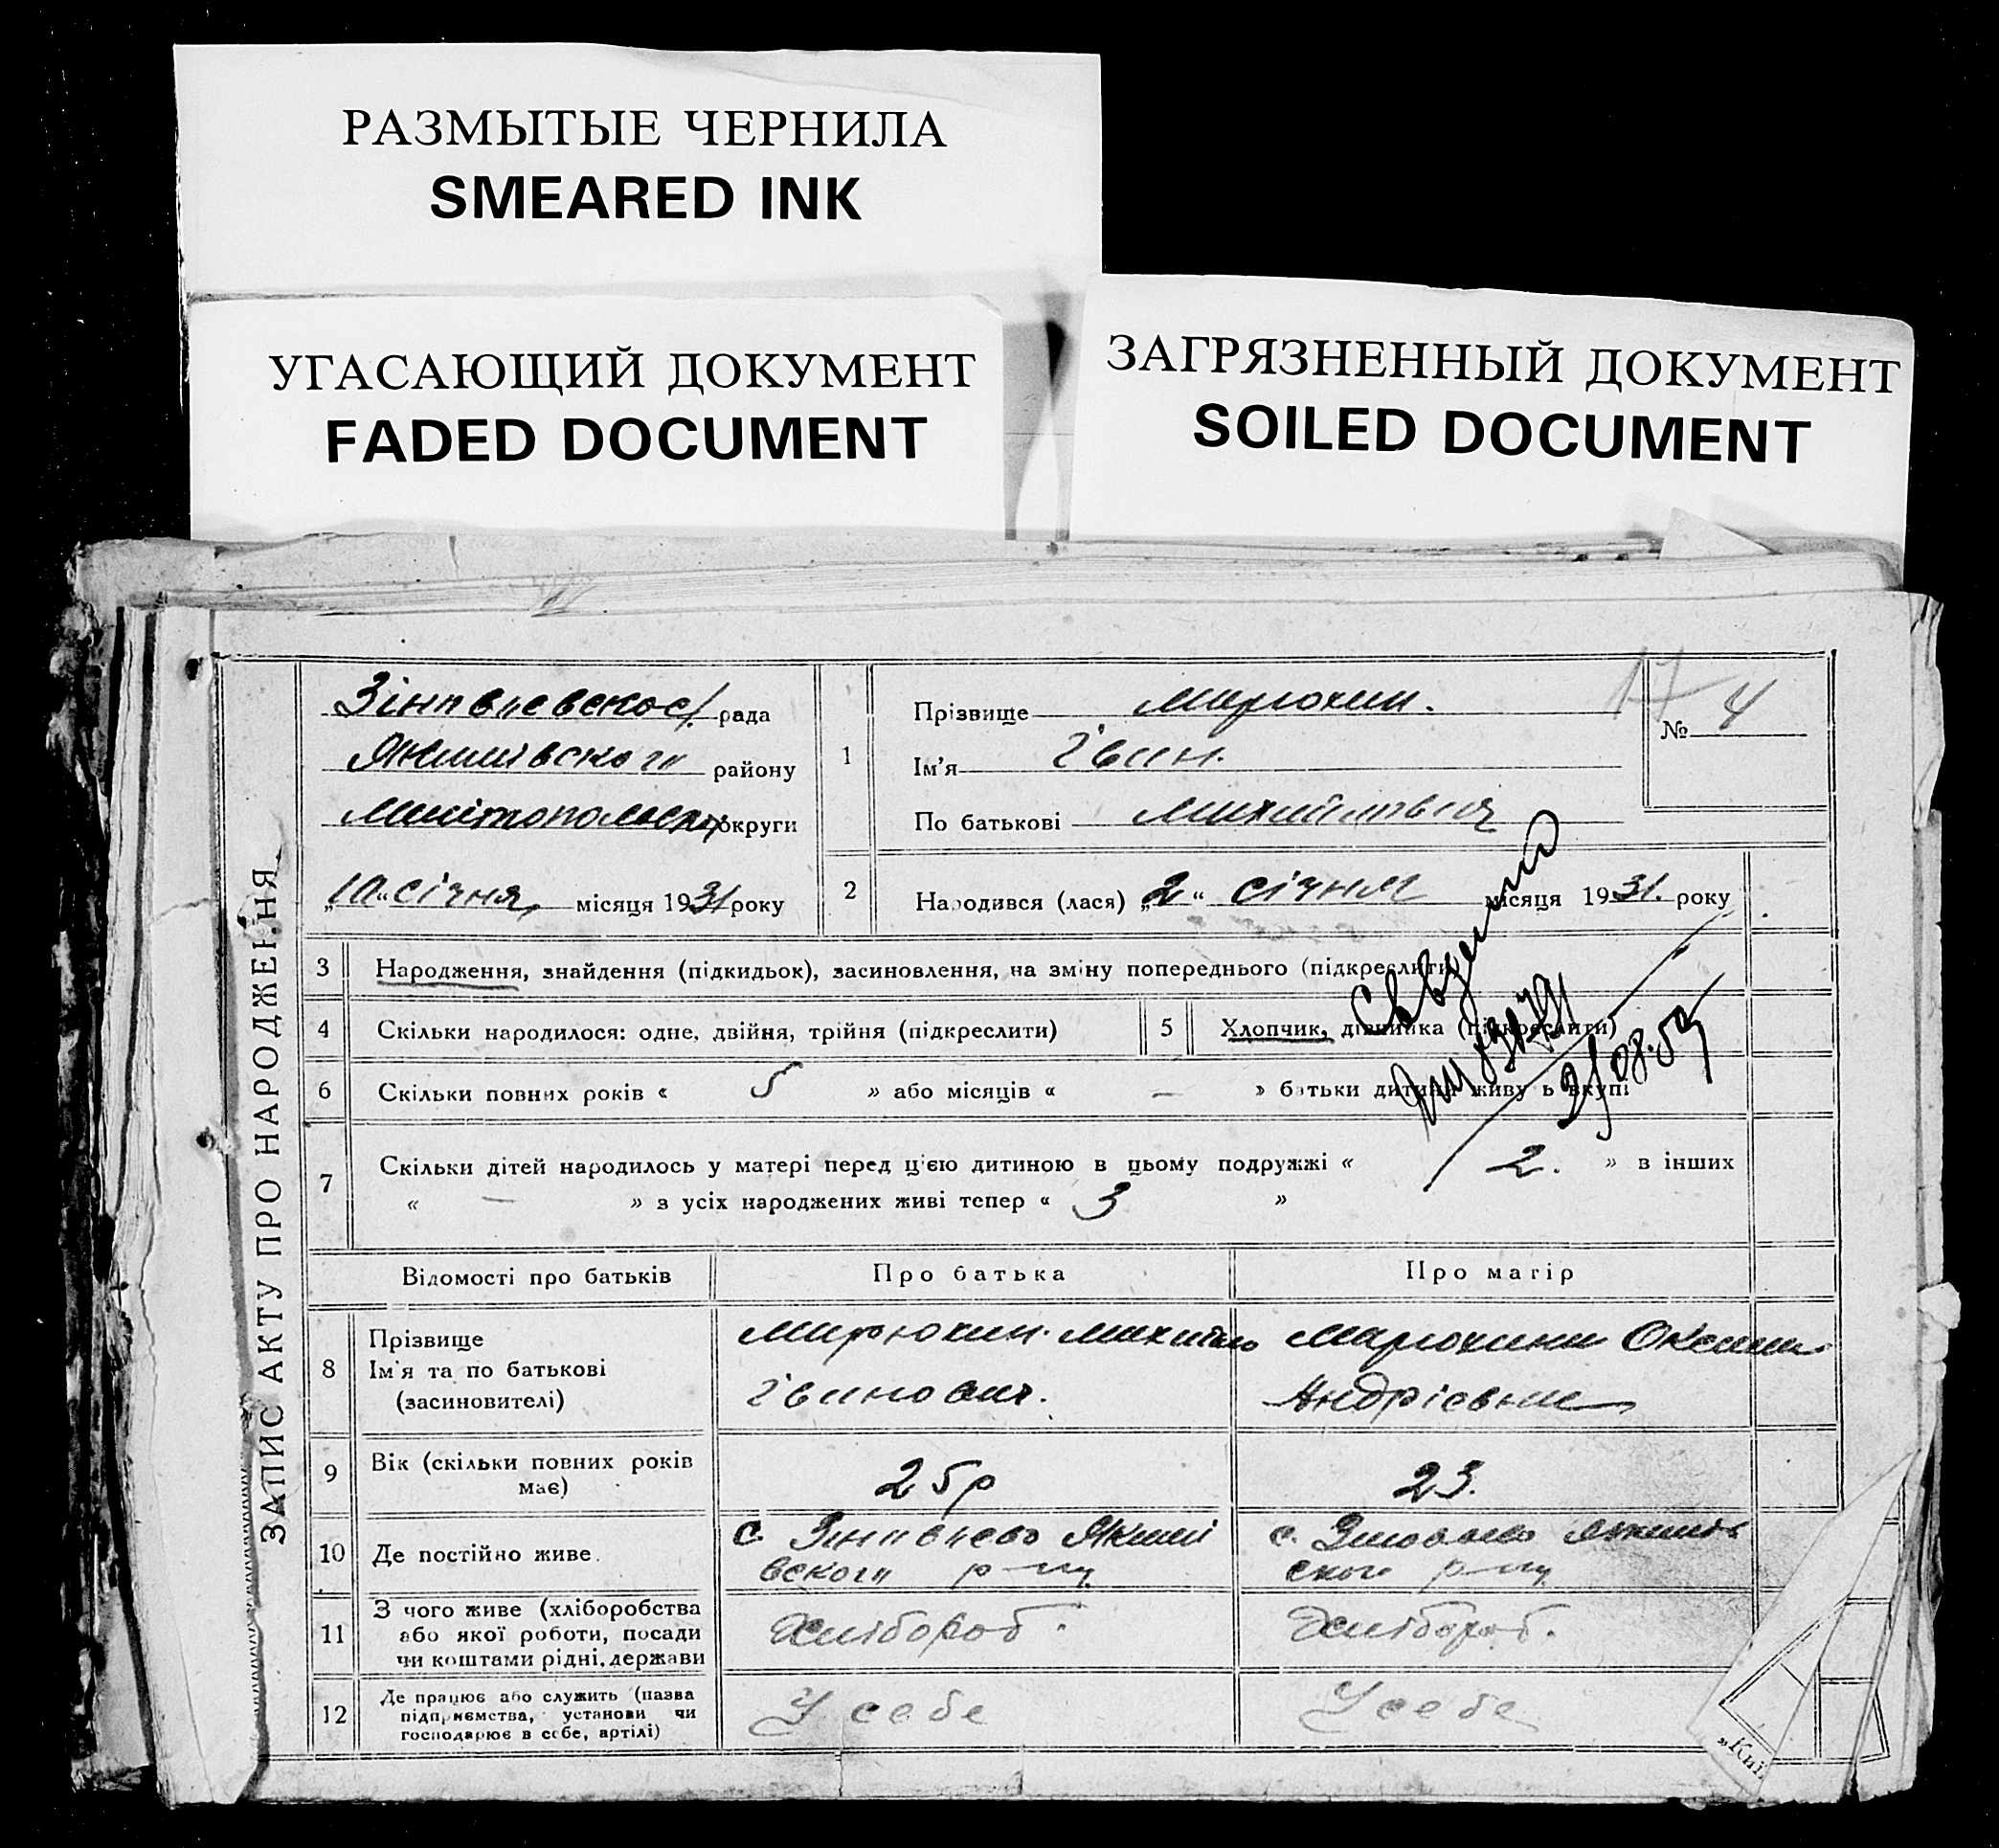 РАЗМЫТЫЕ ЧЕРНИЛА
SMEARED INK
УГАСАЮЩИЙ ДОКУМЕНТ
FADED DOCUMENT
ЗАГРЯЗНЕННЫЙ ДОКУМЕНТ
SOILED DOCUMENT
ЗАПИС АКТУ ПРО НАРОДЖЕННЯ
рада
району
округи
„10“ січня, місяця 1931 року
1
Прізвище
Ім'я Іван.
По батькові Михайлович
17
№ 4
2 Народився (лася) „2“ січня місяця 1931. року
3 Народження, знайдення (підкидьок), засиновлення, на зміну попереднього (підкреслити
4 Скільки народилося: одне, двійня, трійня (підкреслити)
5 Хлопчик, дівчинка (підкреслити)
6 Скільки повних років « 5 » або місяців « — » батьки дитини живуть вкупі
7 Скільки дітей народилось у матері перед цією дитиною в цьому подружжі « 2. » в інших
« — » з усіх народжених живі тепер « 3 »
Відомості про батьків Про батька Про матір
8 Прізвище
Ім'я та по батькові
(засиновителі)
Мирюхин Михайло
Іванович.
Оксана
Андрієвна
9 Вік (скільки повних років
має)
25р
23.
10 Де постійно живе.
с.
р-ну
с.
р-ну
11 З чого живе (хліборобства
або якої роботи, посади
чи коштами рідні, держави
Хлібороб.
Хлібороб.
12 Де працює або служить (назва
підприємства, установи чи
господарює в себе, артілі)
У себе
У себе
„Киї